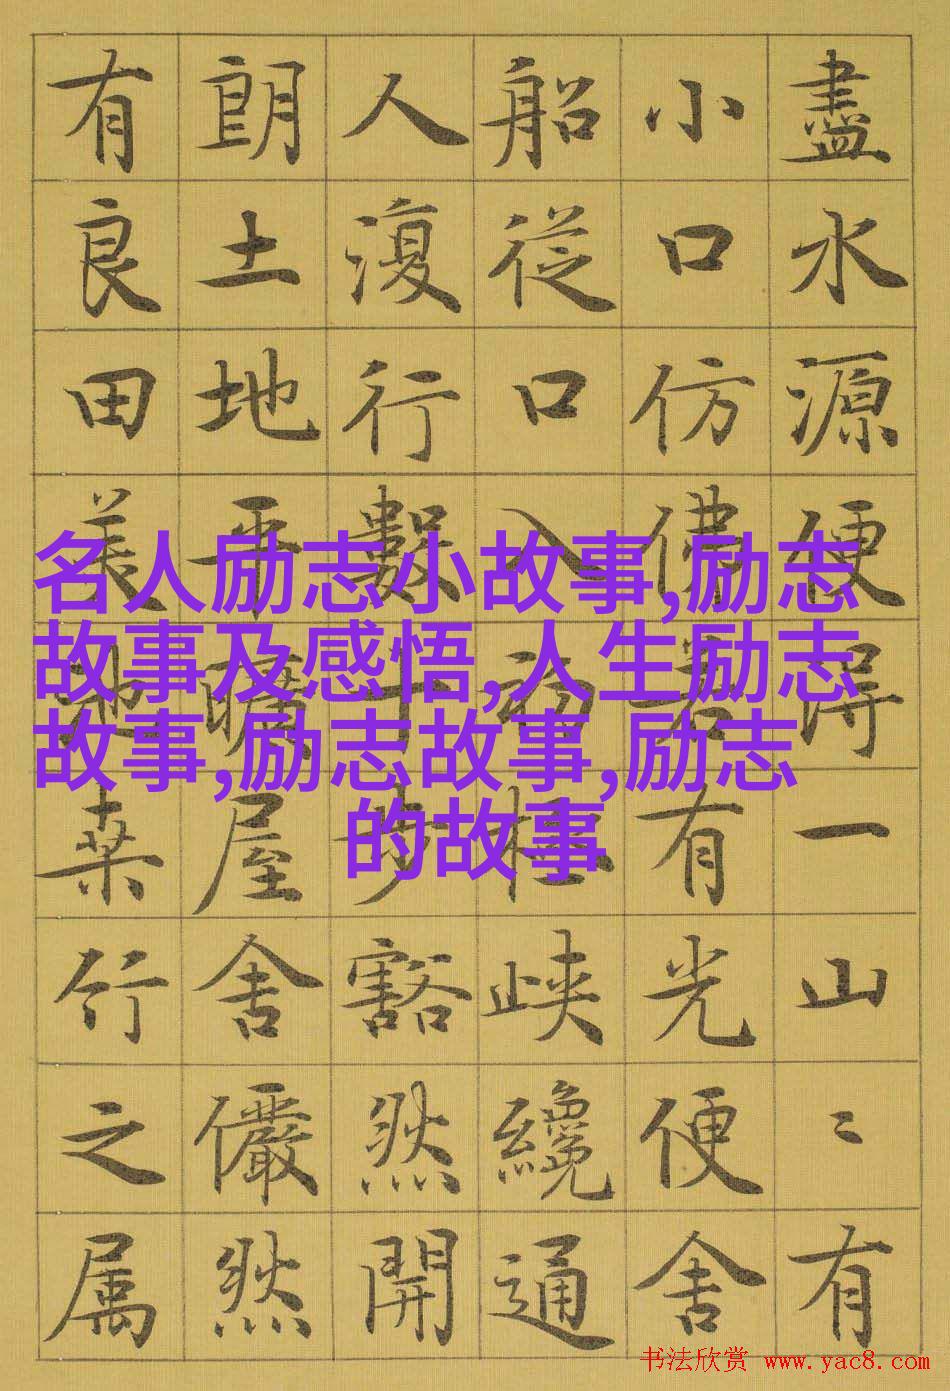 盡水源便得一山〻有
小口仿佛若有光便舍
船從口入初極峽纔通
人復行數十步豁然開
朗土地平曠屋舍儼然
有良田美池桑竹之属
名人励志小故事,励志
故事及感悟,人生励志
故事,励志故事,励志
的故事
书法欣赏 www.yac8.com